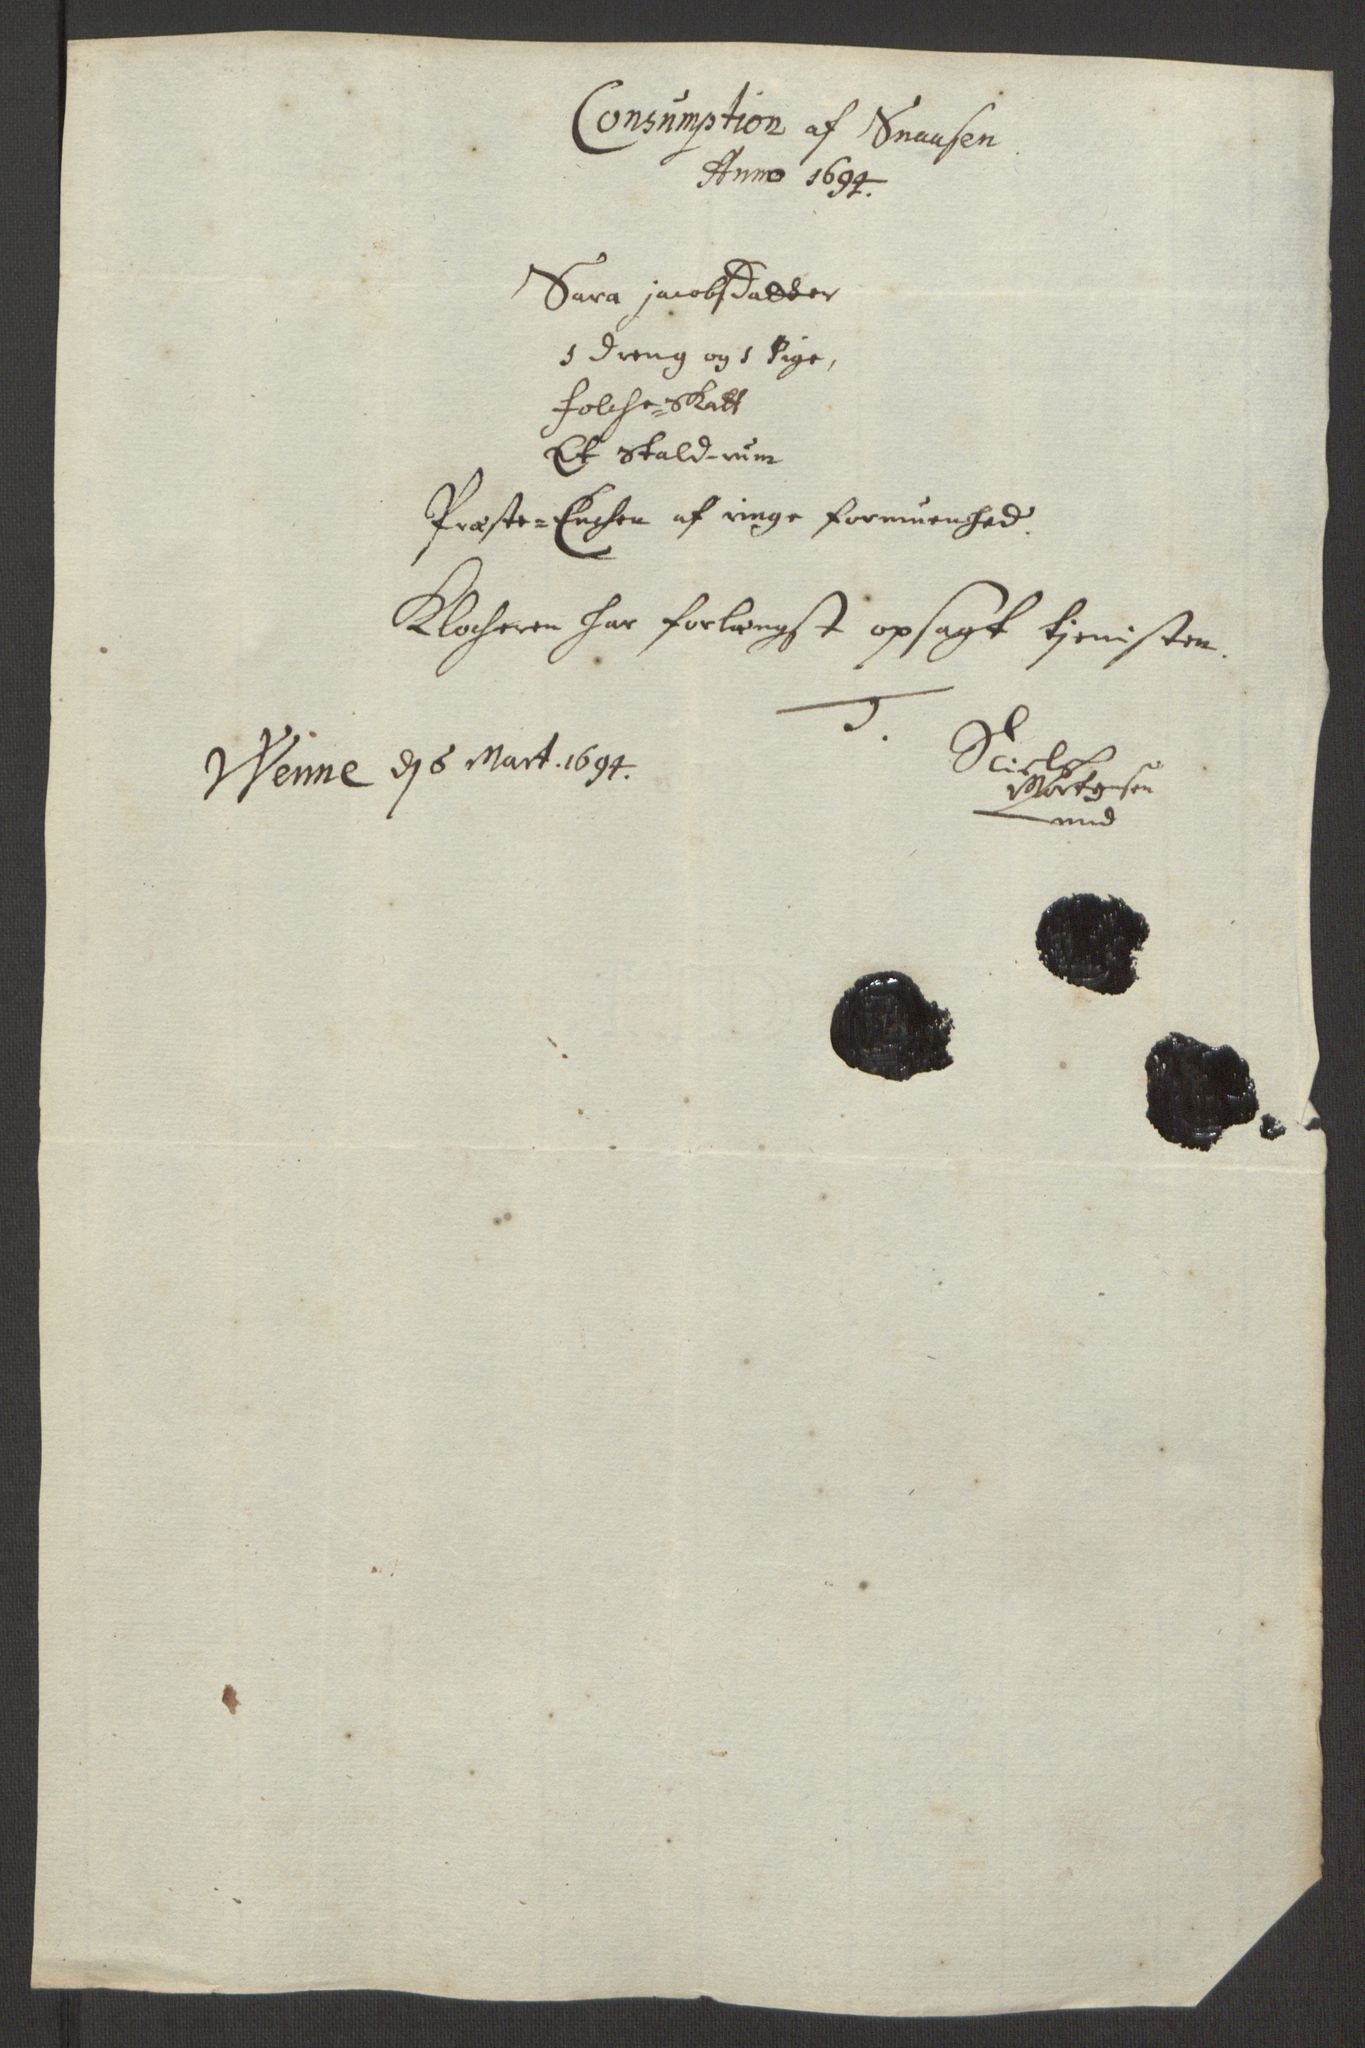 Consumption af Snaasen
Anno 1694.
Sara jacobsdatter
1 dreng og 1 Pige,
folche=Skatt
Et Stald-rum
Præste=Enchen af ringe formuenhed.
Klocheren har forlængst opsagt tjenisten.
T.
Wenne dj 6 Mart. 1694.
Niels
Mortensen
Lund